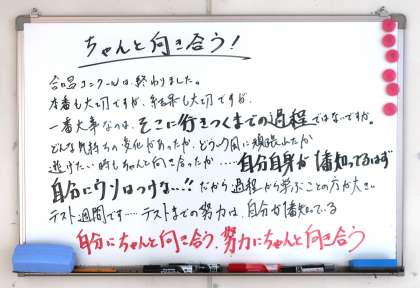 ちゃんと向き合う！
合唱コンクールは、終わりました。
本番も大切ですが、結果も大切ですが、
一番大事なのは、そこに行きつくまでの過程ではないですか。
どんな気持ちの変化があったか、どう今日に頑張ったか
逃げたい時もちゃんと向き合ったか……自分自身が1番知ってるはず
自分にウソはつけない…!! だから過程から学ぶことの方が大きい
テスト週間です……テストまでの努力は、自分が1番知っている
自分にちゃんと向き合う、努力にちゃんと向き合う